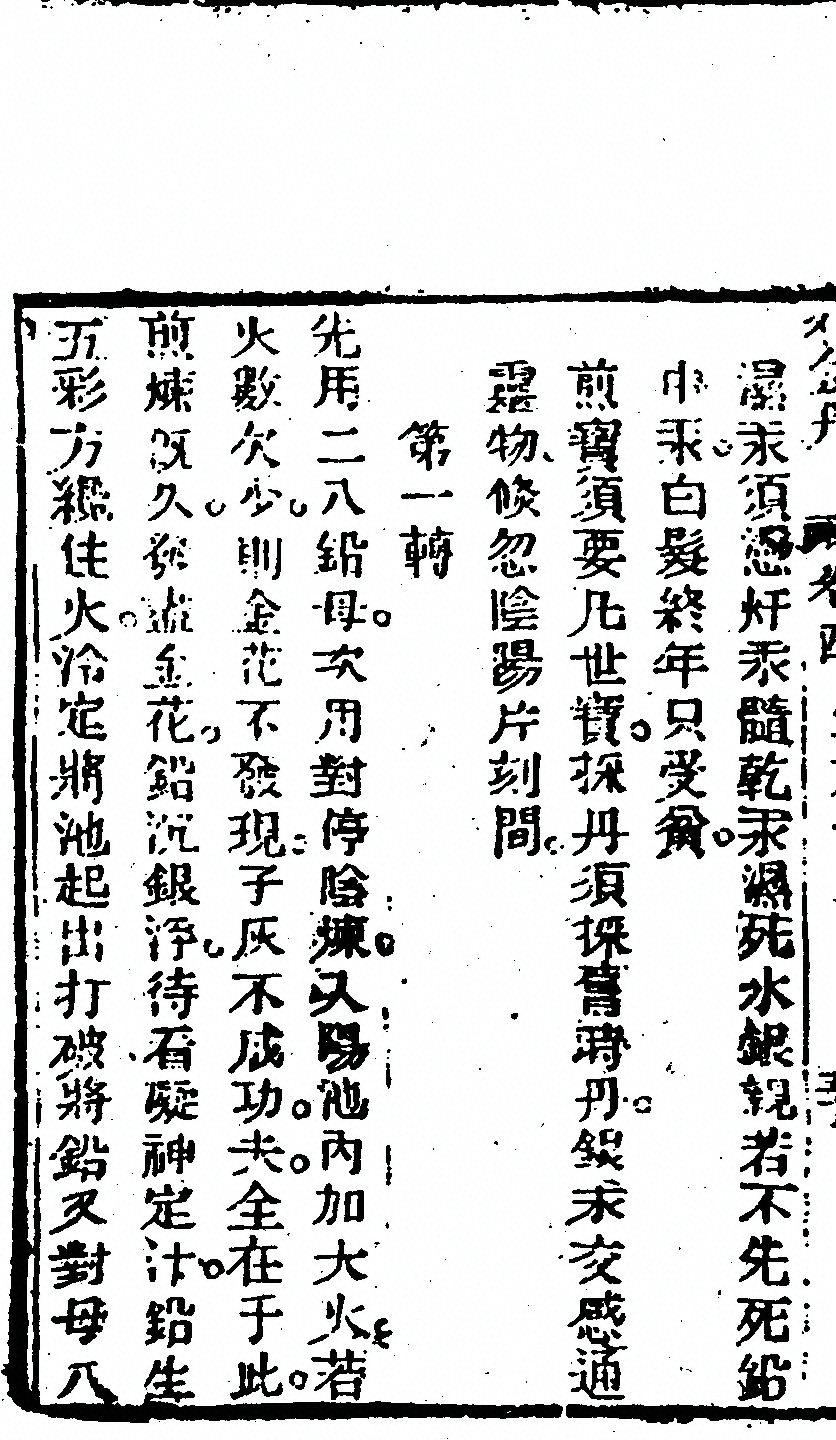 濕汞須慿灯汞髓乾汞濕死水銀親若不先死鉛
中汞。白髮終年只受貧。
煎寶須要几世寶。採丹須採舊時丹。銀汞交感通
靈物、倏忽陰陽片刻間。
第一轉
先用二八鉛母。次用對停陰煉。又陽池內加大火若
火數欠少。則金花不發現。子灰不成功。夫。全在于此。
煎煉既久。發金花。鉛沉銀浮。待看凝神定汁。鉛生
五彩方纔住火。冷定將池起出打破將鉛又對母八